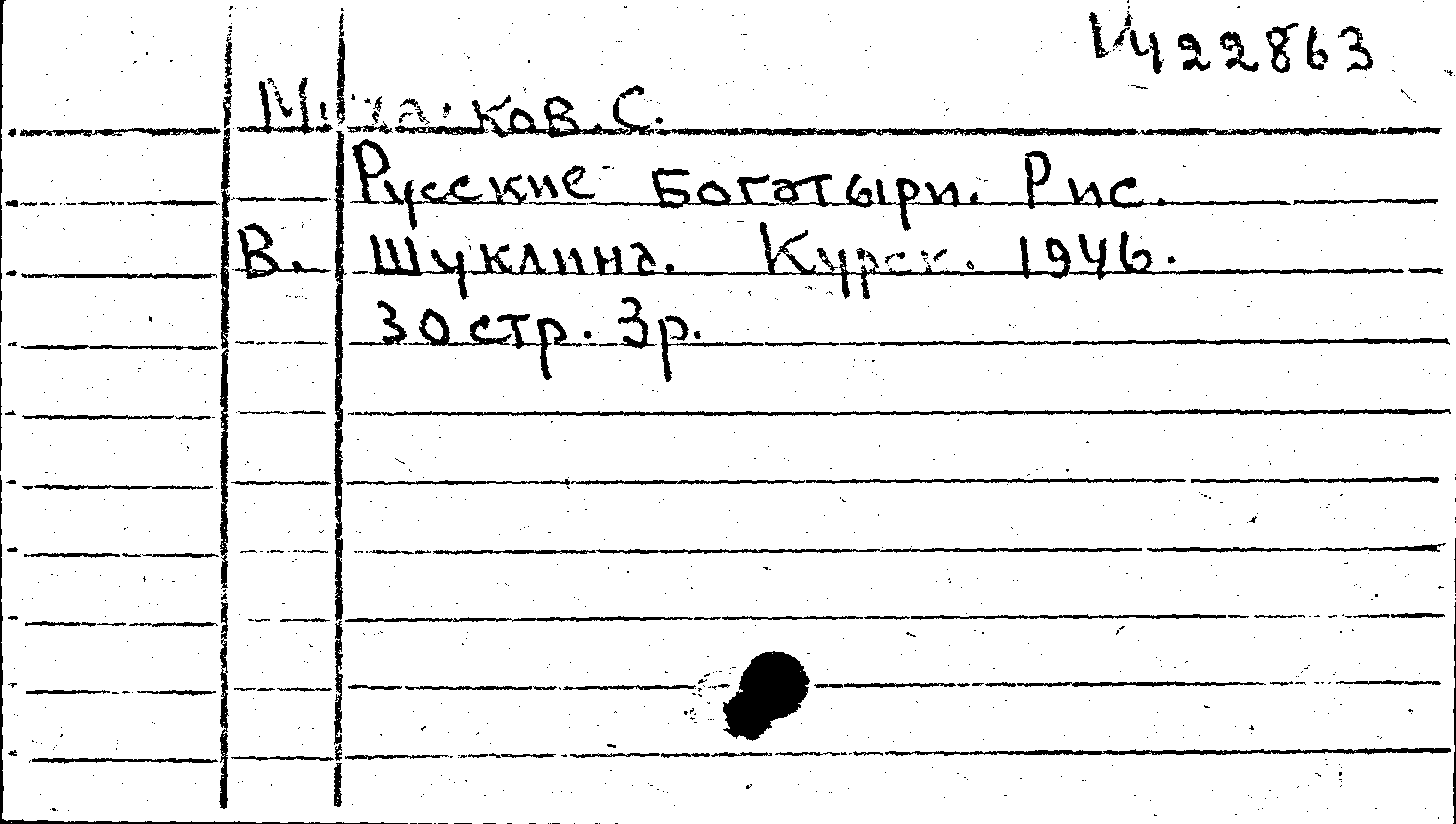 V422863
Михалков. С.
Русские Богатыри. Рис.
В. Шуклина. Курск. 1946.
30 стр. 3р.